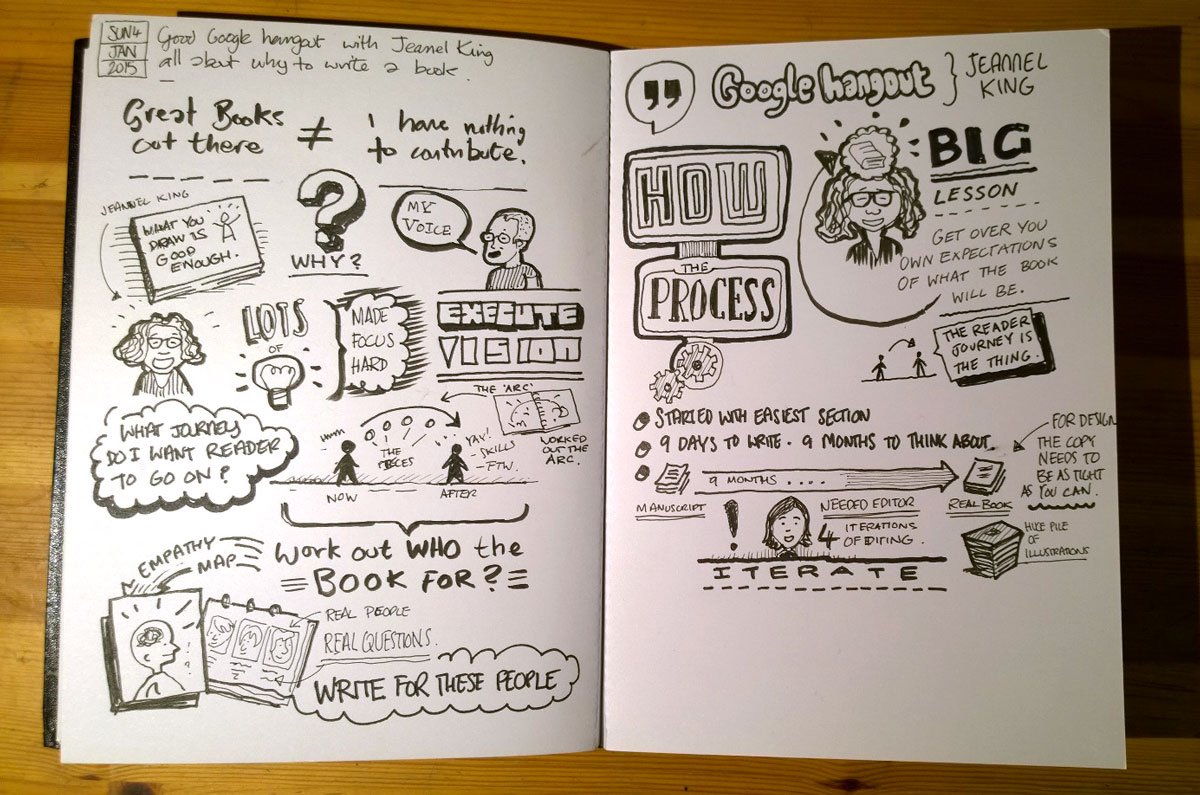 SUN 4
JAN
2015
Good Google hangout with Jeannel King
all about why to write a book.
Great Books
out there
≠
I have nothing
to contribute.
JEANNEL KING
WHAT YOU
DRAW IS
GOOD
ENOUGH.
?
WHY?
MY
VOICE
LOTS
OF
MADE
FOCUS
HARD
EXECUTE
VISION
WHAT JOURNEY
DO I WANT READER
TO GO ON?
THE 'ARC'
WORKED
OUT THE
ARC.
HMM
THE
PIECES
YAY!
SKILLS
-FTW.
NOW
AFTER
Work out WHO the
BOOK FOR?
EMPATHY
MAP
REAL PEOPLE
REAL QUESTIONS.
WRITE FOR THESE PEOPLE
Google hangout } JEANNEL
KING
HOW
THE
PROCESS
BIG
LESSON
GET OVER YOU
OWN EXPECTATIONS
OF WHAT THE BOOK
WILL BE.
THE READER
JOURNEY IS
THE THING.
STARTED WITH EASIEST SECTION
9 DAYS TO WRITE - 9 MONTHS TO THINK ABOUT.
9 MONTHS ....
MANUSCRIPT
REAL BOOK
FOR DESIGN
THE COPY
NEEDS TO
BE AS TIGHT
AS YOU CAN.
!
NEEDED EDITOR
4 ITERATIONS
OF EDITING.
ITERATE
HUGE PILE
OF
ILLUSTRATIONS